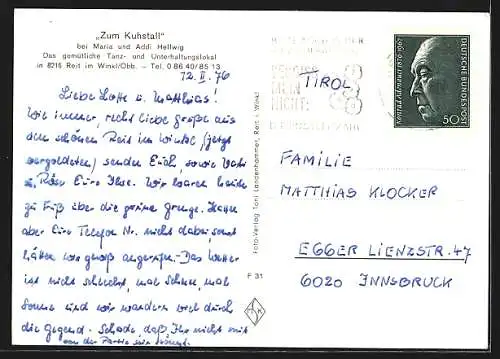 „Zum Kuhstall"
bei Maria und Addi Hellwig
Das gemütliche Tanz- und Unterhaltungslokal
in 8216 Reit im Winkl/Obb. - Tel. 0 86 40/85 13
12. II. 76
Liebe Lotte u. Matthias!
Wie immer, recht liebe Grüße aus
dem schönen Reit im Winkl (jetzt
vergoldeten) senden Euch, sowie
Eure Ilse. Wir waren heute
zu Fuß über die grüne Grenze. Hätte
aber Eure Telefon Nr. nicht dabei sonst
hätten wir angerufen. Das Wetter
ist nicht schlecht, mal Schnee, mal
Sonne und wir wandern viel durch
die Gegend. Schade, daß Ihr nicht mit
von der Partie sein könnt.
Foto-Verlag Toni Landenhammer, Reit i. Winkl
F 31
VERGISS
MEIN
NICHT:
TIROL
Konrad Adenauer 1876-1967
DEUTSCHE BUNDESPOST
50
FAMILIE
MATTHIAS KLOCKER
EGGER LIENZSTR. 47
6020 INNSBRUCK